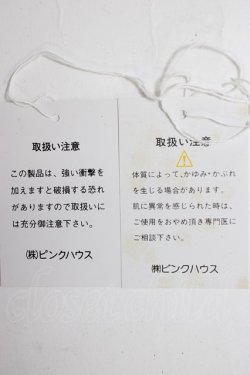 取扱い注意
この製品は、強い衝撃を
加えますと破損する恐れ
がありますので取扱いに
は充分御注意下さい。
㈱ピンクハウス
取扱い注意
体質によって、かゆみ・かぶれ
を生じる場合があります。
肌に異常を感じられた時は、
ご使用をおやめ頂き専門医に
ご相談下さい。
㈱ピンクハウス